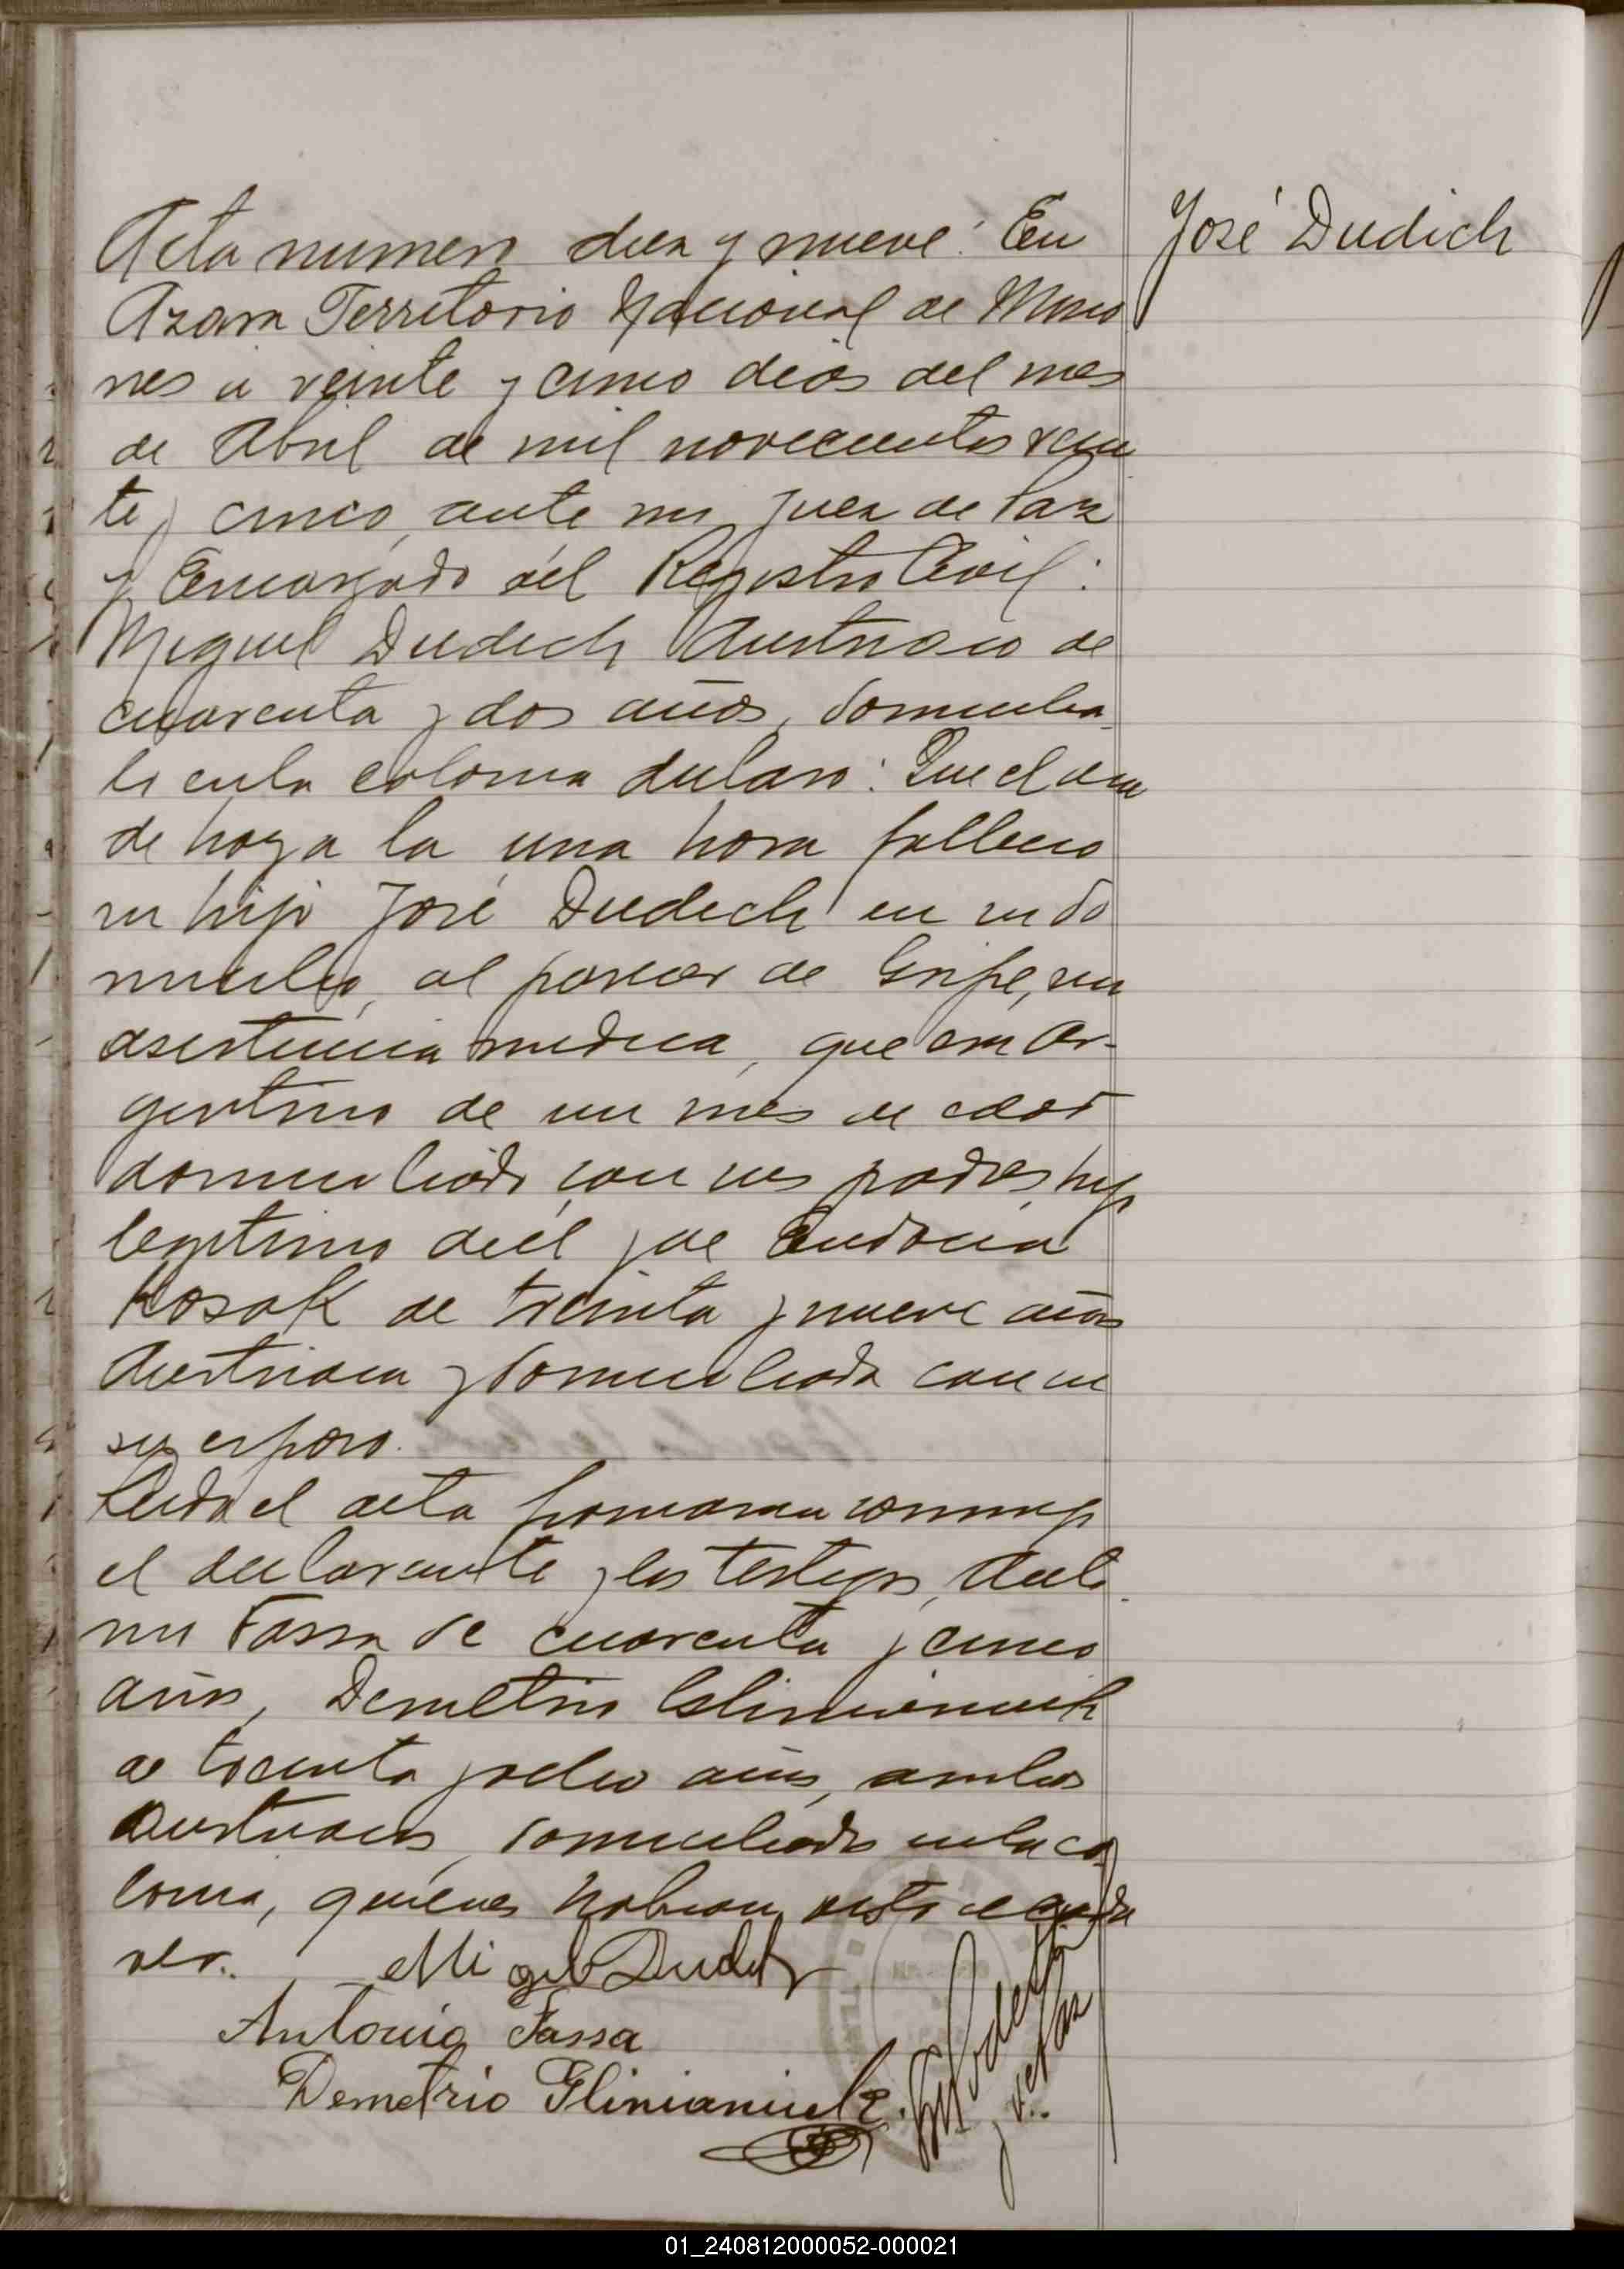 Acta numero diez y nueve: En
José Dudich
Azara Territorio Nacional de Misio
nes a veinte y cinco dias del mes
de Abril de mil novecientos vein
te y cinco, ante mi Juez de Paz
y Encargado del Registro Civil:
Miguel Dudich Austriaco de
cuarenta y dos años, domicilia
do en la colonia declaro: Que el dia
de hoy a la una hora fallecio
su hijo José Dudich en su do
micilio, al parecer de Gripe, sin
asistencia medica, que era Ar-
gentino de un mes de edad
domiciliado con sus padres, hijo
legitimo de él y de
Kosak de treinta y nueve años
Austriaca y domiciliada con su
su esposo.
Leida el acta firmaron conmigo
el declarante y los testigos, Anto
nio Fassa de cuarenta y cinco
años, Demetrio Glinianiuk
de treinta y ocho años, ambos
Austriacos, domiciliados en la co
lonia, quienes habian visto el cada
ver..
Migel Dudich
Antonio Fassa
Demetrio Glinianiuk
01_240812000052-000021